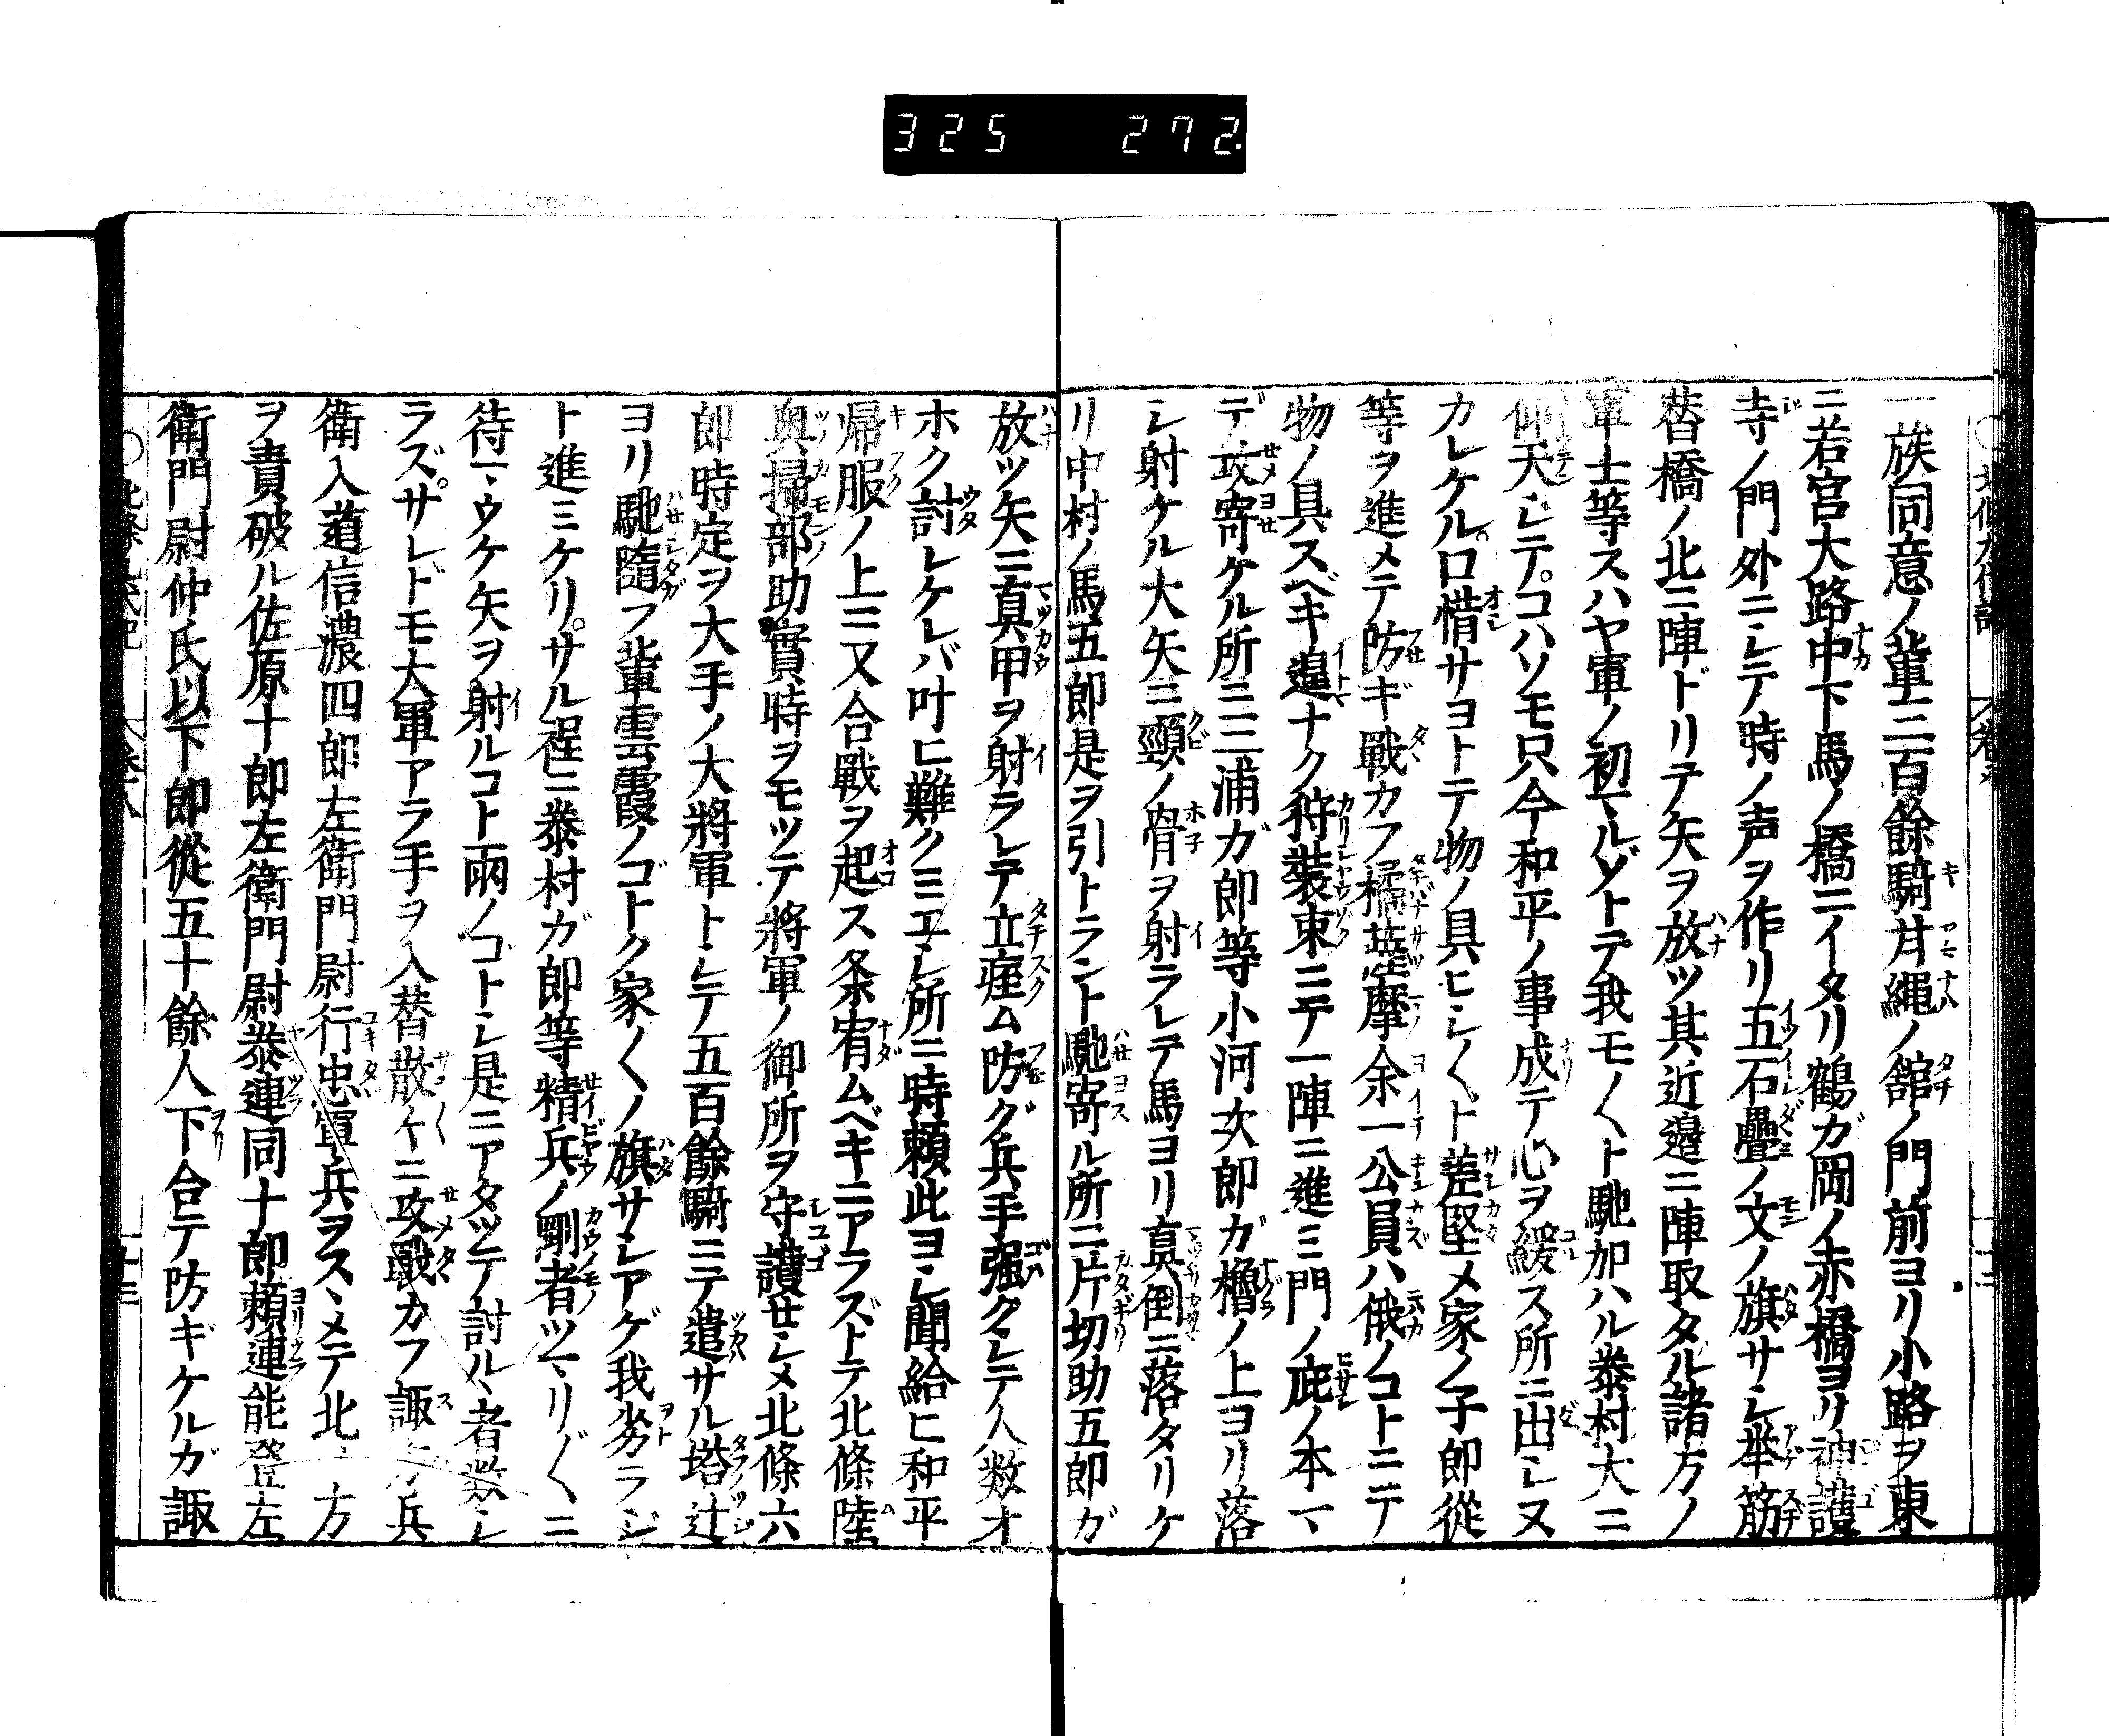 325 272.
一族同意ノ輩三百餘騎甘縄ノ舘ノ門前ヨリ小路ヲ東
ニ若宮大路中下馬ノ橋ニイタリ鶴ガ岡ノ赤橋ヨリ神護
寺ノ門外ニシテ時ノ声ヲ作リ五石疊ノ文ノ旗サシ挙筋
替橋ノ北ニ陣ドリテ矢ヲ放ツ其近邉ニ陣取タル諸方ノ
軍士等スハヤ軍ノ初マルゾトテ我モ〱ト馳加ハル泰村大ニ
仰天シテコハソモ只今和平ノ事成テ心ヲ緩ス所ニ出シヌ
カレケル口惜サヨトテ物ノ具ヒシ〱ト差堅メ家ノ子郎從
等ヲ進メテ防ギ戰カフ橘薩摩余一公員ハ俄ノコトニテ
物ノ具スベキ遑ナク狩裝束ニテ一陣ニ進ミ門ノ庇ノ本マ
デ攻寄ケル所ニ三浦ガ郎等小河次郎ガ櫓ノ上ヨリ落
シ射ケル大矢ニ頸ノ骨ヲ射ラレテ馬ヨリ真倒ニ落タリケ
リ中村ノ馬五郎是ヲ引トラント馳寄ル所ニ片切助五郎ガ
放ツ矢ニ真甲ヲ射ラレテ立痓ム防グ兵手强クシテ人数オ
ホク討レケレバ叶ヒ難クミエシ所ニ時頼此ヨシ聞給ヒ和平
帰服ノ上ニ又合戰ヲ起ス条宥ムベキニアラズトテ北條陸
奥掃部助實時ヲモツテ將軍ノ御所ヲ守護セシメ北條六
郎時定ヲ大手ノ大將軍トシテ五百餘騎ニテ遣サル塔辻
ヨリ馳隨フ輩雲霞ノゴトク家〱ノ旗サシアゲ我劣ラジ
ト進ミケリサル程ニ泰村ガ郎等精兵ノ剛者ツマリ〲ニ
待マウケ矢ヲ射ルコト雨ノゴトシ是ニアタツテ討ルヽ者数シ
ラズサレドモ大軍アラ手ヲ入替散〱ニ攻戰カフ諏方兵
衛入道信濃四郎左衛門尉行忠軍兵ヲスヽメテ北ノ方
ヲ責破ル佐原十郎左衛門尉泰連同十郎頼連能登左
衛門尉仲氏以下郎從五十餘人下合テ防ギケルガ諏